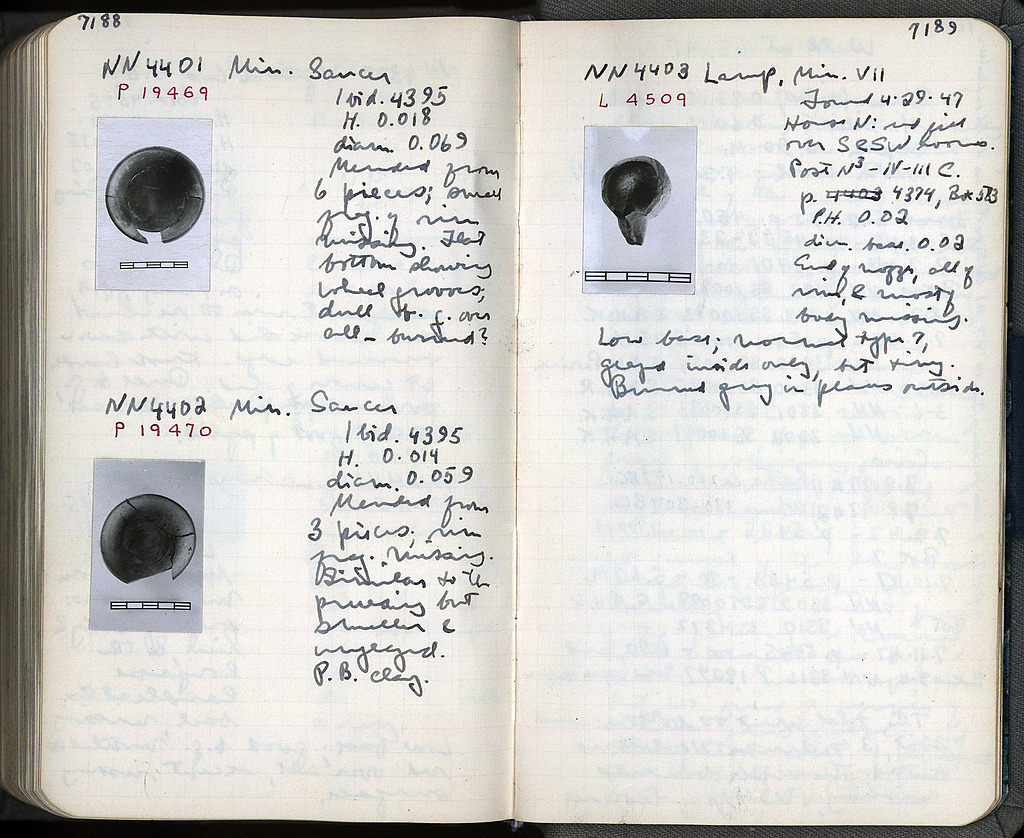 7188
NN4401 Min. Saucer
P 19469
Ibid. 4395
H. 0.018
diam. 0.069
Mended from
6 pieces; small
frag. of rim
missing. Flat
bottom showing
wheel grooves;
dull b. g. over
all – burned?
NN4402 Min. Saucer
P 19470
Ibid. 4395
H. 0.014
diam. 0.059
Mended from
3 pieces, rim
frag. missing.
Similar to the
preceding but
smaller &
unglazed.
P. B. clay.
7189
NN4403 Lamp, Min. VII
L 4509
Found 4·29·47
House N: red fill
over S & SW rooms.
Post N³ – IV–III C.
p. 4403 4374, Box 573
P.H. 0.02
dim. base. 0.02
End of nozzle, all of
rim, & mostly
body missing.
Low base; normal type 7,
glazed inside only, but tiny.
Burned gray in places outside.